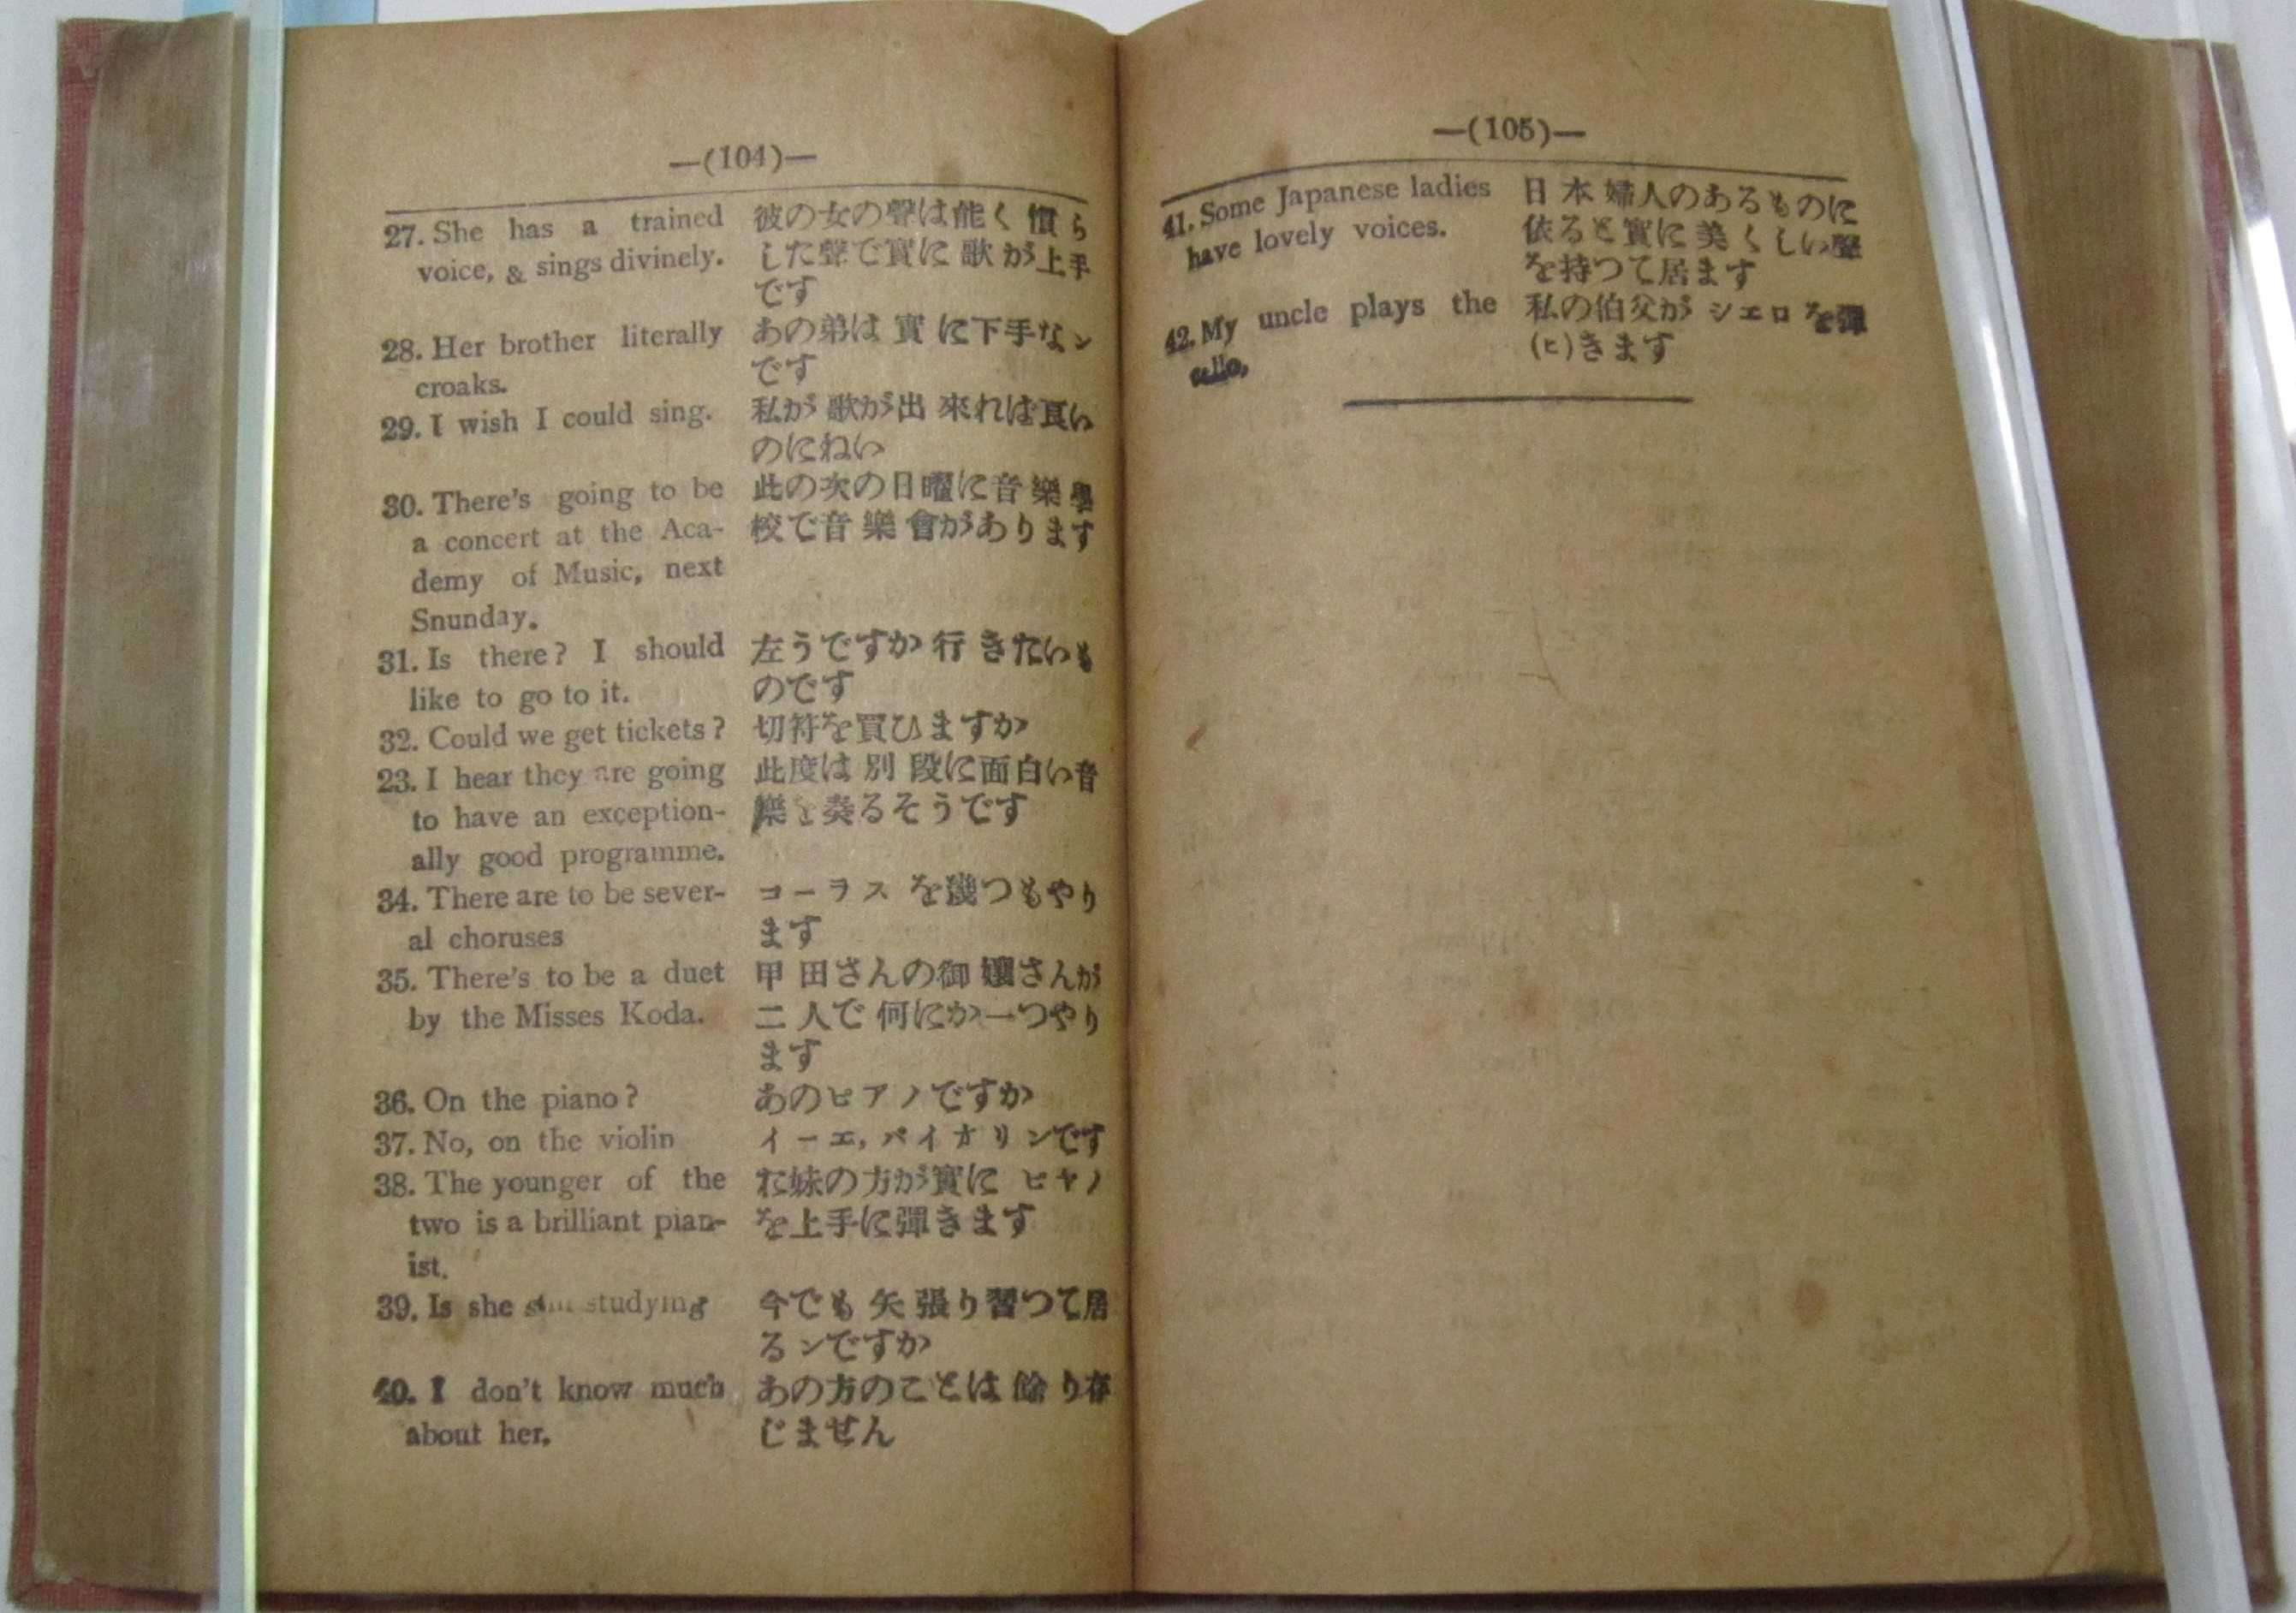 —(104)—
27. She has a trained
voice, & sings divinely.
彼の女の聲は能く慣ら
した聲で實に歌が上手
です
28. Her brother literally
croaks.
あの弟は實に下手なン
です
29. I wish I could sing.
私が歌が出來れば良い
のにねい
30. There's going to be
a concert at the Aca-
demy of Music, next
Snunday.
此の次の日曜に音樂學
校で音樂會があります
31. Is there? I should
like to go to it.
左うですか行きたいも
のです
32. Could we get tickets?
切符を買ひますか
23. I hear they are going
to have an exception-
ally good programme.
此度は別段に面白い音
樂を奏るそうです
34. There are to be sever-
al choruses
コーラスを幾つもやり
ます
35. There's to be a duet
by the Misses Koda.
甲田さんの御孃さんが
二人で何にか一つやり
ます
36. On the piano?
あのピアノですか
37. No, on the violin
イーエ, バイオリンです
38. The younger of the
two is a brilliant pian-
ist.
お妹の方が實にピヤノ
を上手に彈きます
39. Is she still studying
今でも矢張り習つて居
るンですか
40. I don't know much
about her.
あの方のことは餘り存
じません
—(105)—
41. Some Japanese ladies
have lovely voices.
日本婦人のあるものに
依ると實に美くしい聲
を持つて居ます
42. My uncle plays the
cello,
私の伯父がシエロを彈
(ヒ)きます